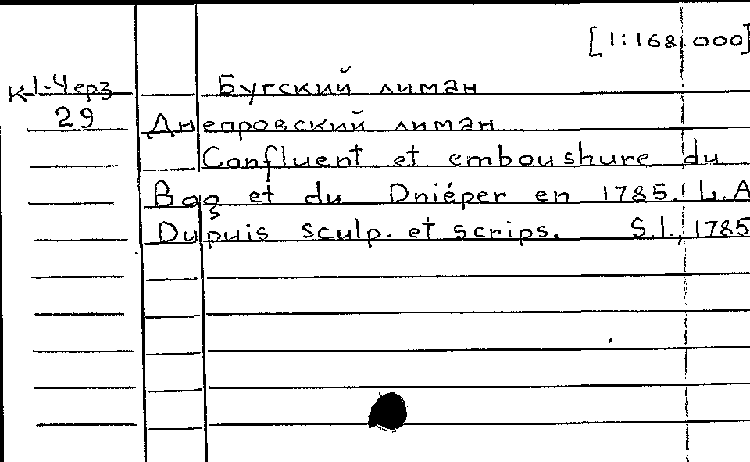 [1:168 000]
К1-Черз Бугский лиман
29 Днепровский лиман
Confluent et emboushure du
Bog et du Dniéper en 1785. L.A
Dupuis sculp. et scrips. S.l., 1785